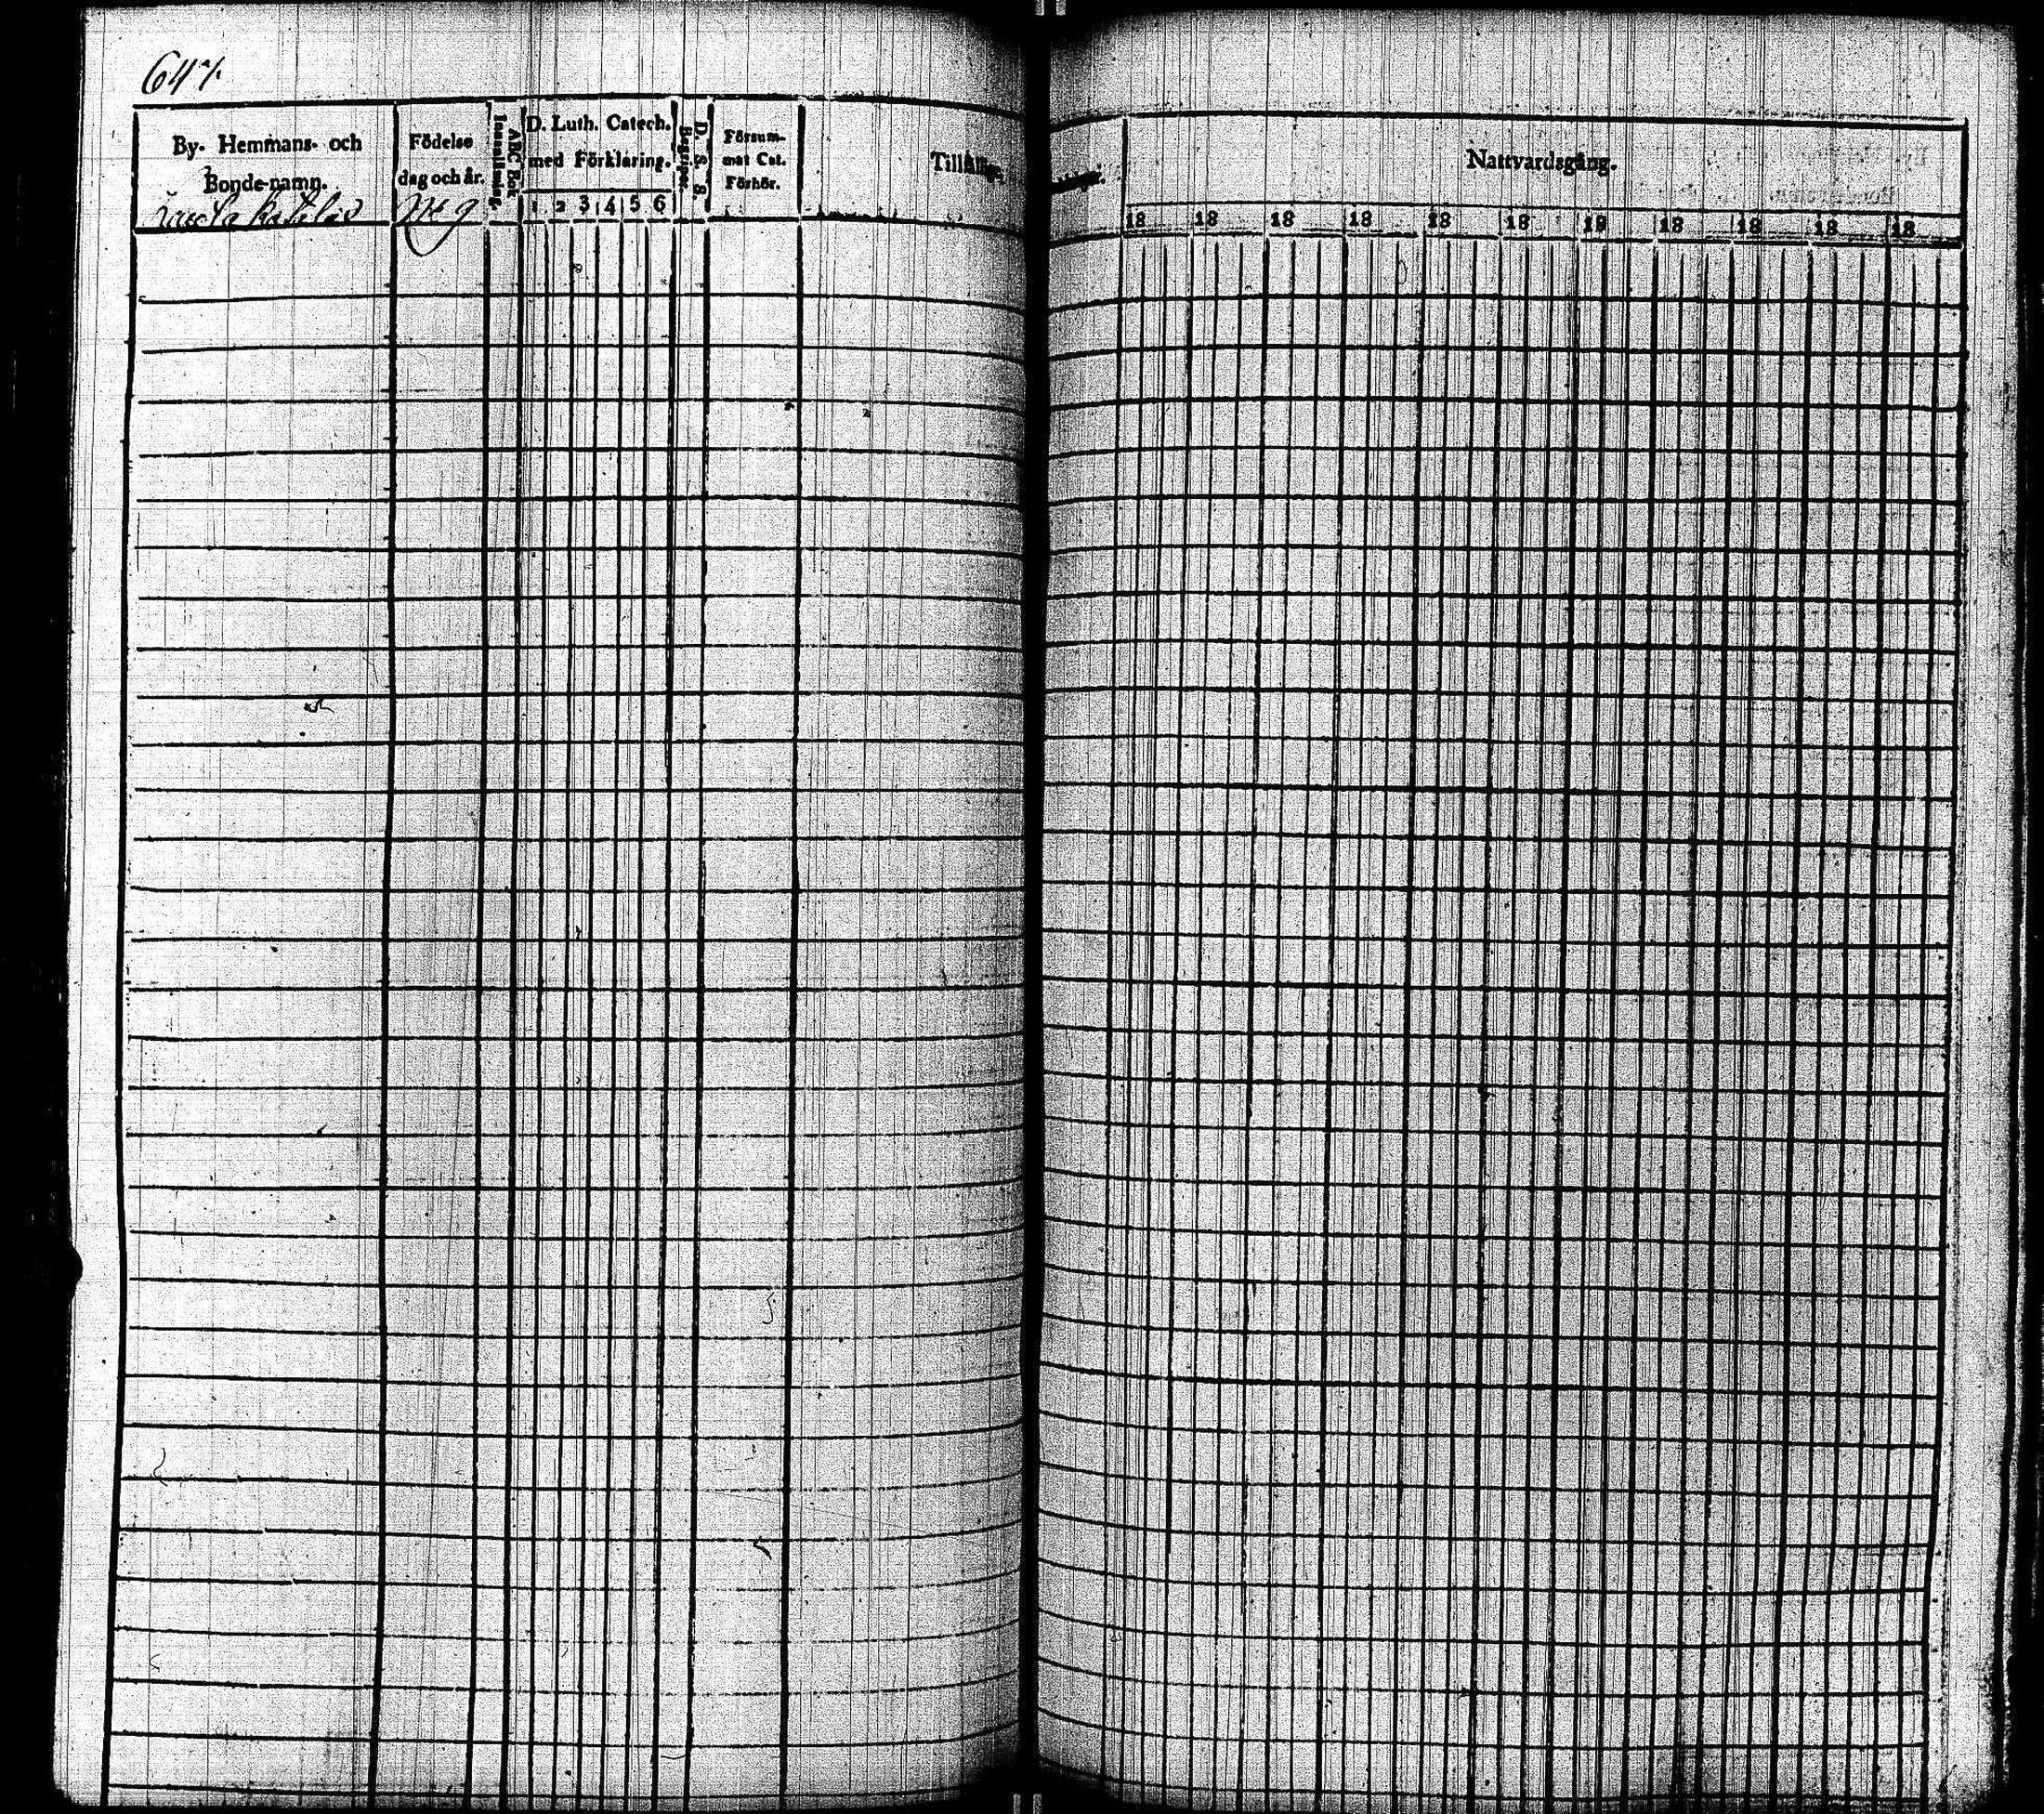 647.
By- Hemmans- och
Bonde-namn.
Födelse
dag och år.
ABC Bok
Innanläsning.
D. Luth. Catech.
med Förklaring.
1 2 3 4 5 6
D. S. S.
Begriper.
Försum-
mat Cat.
Förhör.
No 9
Nattvardsgång.
18 18 18 18 18 18 18 18 18 18 18